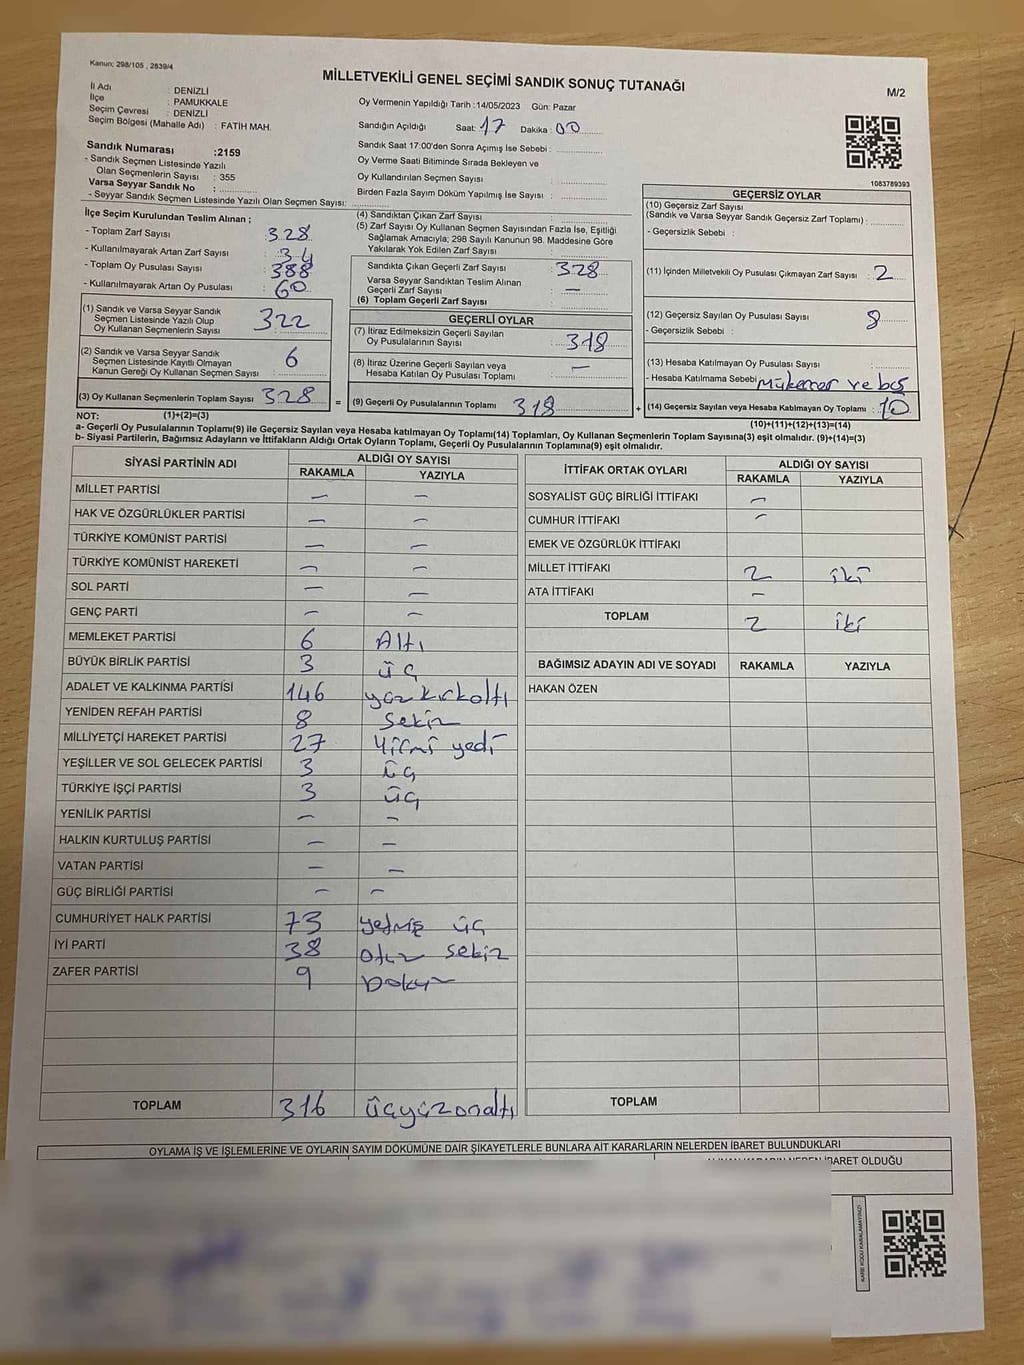 Kanun: 298/105 , 2839/4
MİLLETVEKİLİ GENEL SEÇİMİ SANDIK SONUÇ TUTANAĞI
M/2
İl Adı : DENİZLİ
İlçe : PAMUKKALE
Seçim Çevresi : DENİZLİ
Seçim Bölgesi (Mahalle Adı) : FATİH MAH.
Oy Vermenin Yapıldığı Tarih :14/05/2023 Gün: Pazar
Sandığın Açıldığı Saat: 17 Dakika : 00
Sandık Saat 17:00'den Sonra Açımış İse Sebebi :
Oy Verme Saati Bitiminde Sırada Bekleyen ve
Oy Kullandırılan Seçmen Sayısı :
Birden Fazla Sayım Döküm Yapılmış İse Sayısı :
1083789393
Sandık Numarası :2159
- Sandık Seçmen Listesinde Yazılı
Olan Seçmenlerin Sayısı : 355
Varsa Seyyar Sandık No :
- Seyyar Sandık Seçmen Listesinde Yazılı Olan Seçmen Sayısı:
İlçe Seçim Kurulundan Teslim Alınan ;
- Toplam Zarf Sayısı : 328
- Kullanılmayarak Artan Zarf Sayısı : 34
- Toplam Oy Pusulası Sayısı : 388
- Kullanılmayarak Artan Oy Pusulası : 60
(1) Sandık ve Varsa Seyyar Sandık
Seçmen Listesinde Yazılı Olup
Oy Kullanan Seçmenlerin Sayısı : 322
(2) Sandık ve Varsa Seyyar Sandık
Seçmen Listesinde Kayıtlı Olmayan
Kanun Gereği Oy Kullanan Seçmen Sayısı : 6
(3) Oy Kullanan Seçmenlerin Toplam Sayısı : 328
(1)+(2)=(3)
(4) Sandıktan Çıkan Zarf Sayısı :
(5) Zarf Sayısı Oy Kullanan Seçmen Sayısından Fazla İse, Eşitliği
Sağlamak Amacıyla; 298 Sayılı Kanunun 98. Maddesine Göre
Yakılarak Yok Edilen Zarf Sayısı :
Sandıkta Çıkan Geçerli Zarf Sayısı : 328
Varsa Seyyar Sandıktan Teslim Alınan
Geçerli Zarf Sayısı : —
(6) Toplam Geçerli Zarf Sayısı :
GEÇERLİ OYLAR
(7) İtiraz Edilmeksizin Geçerli Sayılan
Oy Pusulalarının Sayısı : 318
(8) İtiraz Üzerine Geçerli Sayılan veya
Hesaba Katılan Oy Pusulası Toplamı : —
= (9) Geçerli Oy Pusulalarının Toplamı : 318
GEÇERSİZ OYLAR
(10) Geçersiz Zarf Sayısı
(Sandık ve Varsa Seyyar Sandık Geçersiz Zarf Toplamı) :
- Geçersizlik Sebebi :
(11) İçinden Milletvekili Oy Pusulası Çıkmayan Zarf Sayısı : 2
(12) Geçersiz Sayılan Oy Pusulası Sayısı : 8
- Geçersizlik Sebebi :
(13) Hesaba Katılmayan Oy Pusulası Sayısı :
- Hesaba Katılmama Sebebi : Mükerrer ve boş
+ (14) Geçersiz Sayılan veya Hesaba Katılmayan Oy Toplamı : 10
(10)+(11)+(12)+(13)=(14)
NOT:
a- Geçerli Oy Pusulalarının Toplamı(9) ile Geçersiz Sayılan veya Hesaba katılmayan Oy Toplamı(14) Toplamları, Oy Kullanan Seçmenlerin Toplam Sayısına(3) eşit olmalıdır. (9)+(14)=(3)
b- Siyasi Partilerin, Bağımsız Adayların ve İttifakların Aldığı Ortak Oyların Toplamı, Geçerli Oy Pusulalarının Toplamına(9) eşit olmalıdır.
SİYASİ PARTİNİN ADI ALDIĞI OY SAYISI
RAKAMLA YAZIYLA
MİLLET PARTİSİ — —
HAK VE ÖZGÜRLÜKLER PARTİSİ — —
TÜRKİYE KOMÜNİST PARTİSİ — —
TÜRKİYE KOMÜNİST HAREKETİ — —
SOL PARTİ — —
GENÇ PARTİ — —
MEMLEKET PARTİSİ 6 Altı
BÜYÜK BİRLİK PARTİSİ 3 üç
ADALET VE KALKINMA PARTİSİ 146 yüzkırkaltı
YENİDEN REFAH PARTİSİ 8 sekiz
MİLLİYETÇİ HAREKET PARTİSİ 27 Yirmi yedi
YEŞİLLER VE SOL GELECEK PARTİSİ 3 üç
TÜRKİYE İŞÇİ PARTİSİ 3 üç
YENİLİK PARTİSİ — —
HALKIN KURTULUŞ PARTİSİ — —
VATAN PARTİSİ — —
GÜÇ BİRLİĞİ PARTİSİ — —
CUMHURİYET HALK PARTİSİ 73 yetmiş üç
İYİ PARTİ 38 otuz sekiz
ZAFER PARTİSİ 9 Dokuz
TOPLAM 316 üçyüzonaltı
İTTİFAK ORTAK OYLARI ALDIĞI OY SAYISI
RAKAMLA YAZIYLA
SOSYALİST GÜÇ BİRLİĞİ İTTİFAKI —
CUMHUR İTTİFAKI —
EMEK VE ÖZGÜRLÜK İTTİFAKI
MİLLET İTTİFAKI 2 iki
ATA İTTİFAKI —
TOPLAM 2 iki
BAĞIMSIZ ADAYIN ADI VE SOYADI RAKAMLA YAZIYLA
HAKAN ÖZEN
TOPLAM
OYLAMA İŞ VE İŞLEMLERİNE VE OYLARIN SAYIM DÖKÜMÜNE DAİR ŞİKAYETLERLE BUNLARA AİT KARARLARIN NELERDEN İBARET BULUNDUKLARI
İBARET OLDUĞU
KARE KODU KARALAMAYINIZ!